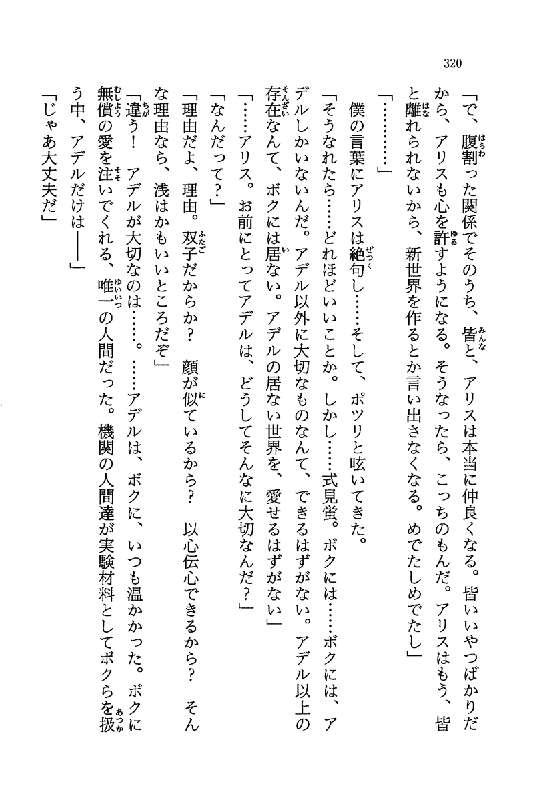 320
「で、腹割った関係でそのうち、皆と、アリスは本当に仲良くなる。皆いいやつばかりだ
から、アリスも心を許すようになる。そうなったら、こっちのもんだ。アリスはもう、皆
と離れられないから、新世界を作るとか言い出さなくなる。めでたしめでたし」
「…………」
僕の言葉にアリスは絶句し……そして、ポツリと呟いてきた。
「そうなれたら……どれほどいいことか。しかし……式見蛍。ボクには……ボクには、ア
デルしかいないんだ。アデル以外に大切なものなんて、できるはずがない。アデル以上の
存在なんて、ボクには居ない。アデルの居ない世界を、愛せるはずがない」
「……アリス。お前にとってアデルは、どうしてそんなに大切なんだ？」
「なんだって？」
「理由だよ、理由。双子だからか？　顔が似ているから？　以心伝心できるから？　そん
な理由なら、浅はかもいいところだぞ」
「違う！　アデルが大切なのは……。……アデルは、ボクに、いつも温かかった。ボクに
無償の愛を注いでくれる、唯一の人間だった。機関の人間達が実験材料としてボクらを扱
う中、アデルだけは――」
「じゃあ大丈夫だ」